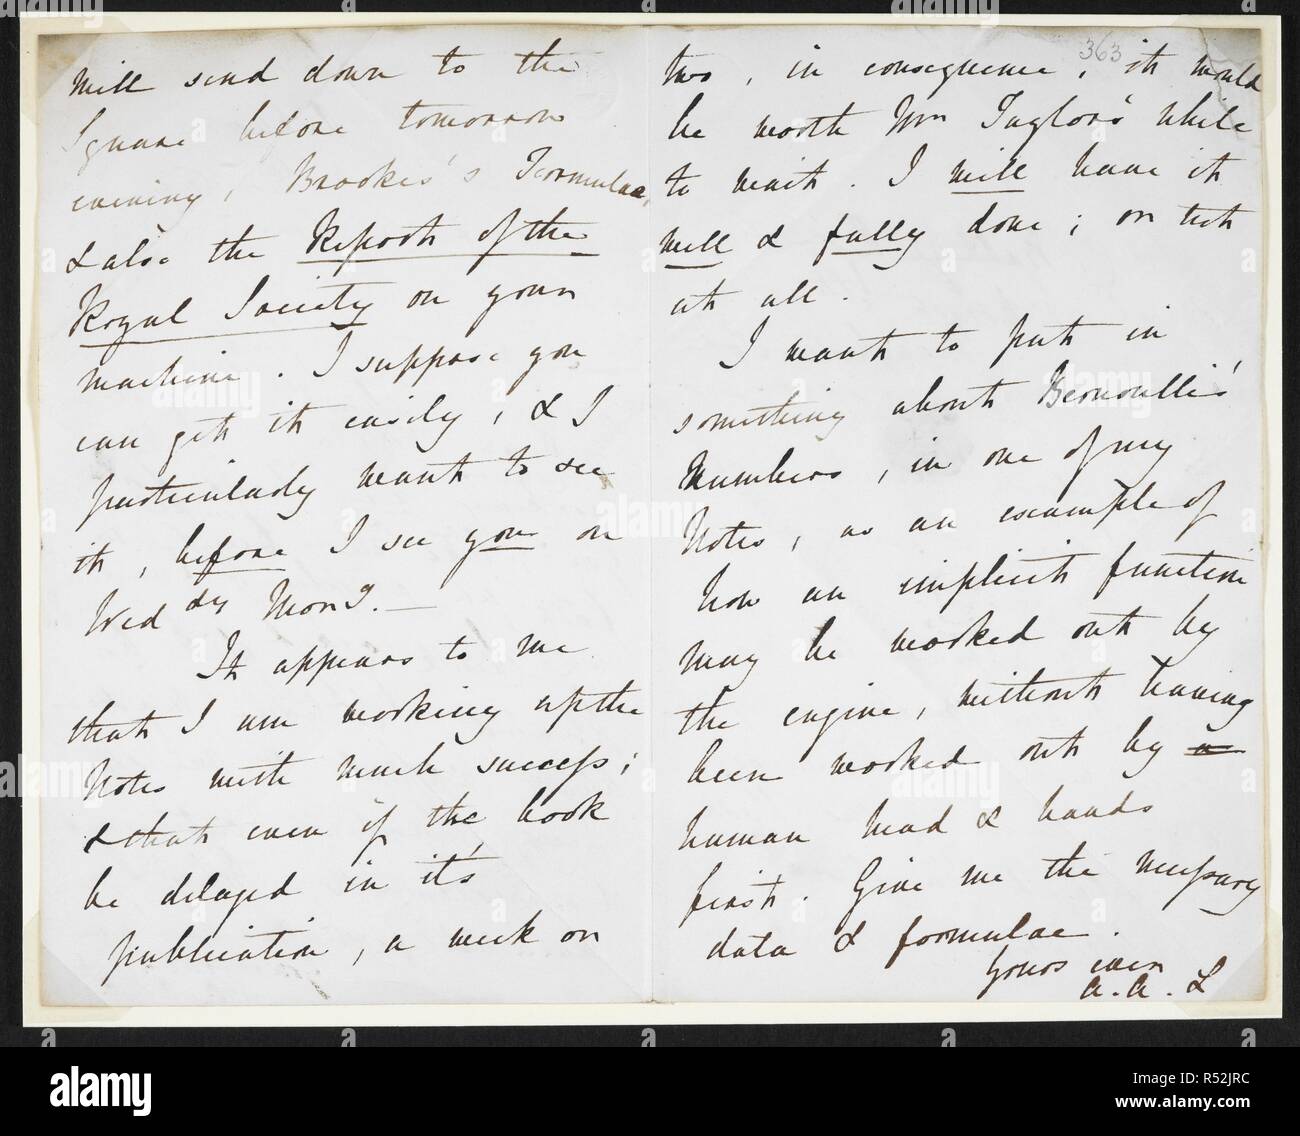 will send down to the
Square before tomorrow
evening, Brooke's's Formulae,
& also the Report of the
Royal Society on your
machine. I suppose you
can get it easily, & I
particularly want to see
it, before I see you on
Wed dy Morng. —
It appears to me
that I am working up the
Notes with much success;
& that even if the book
be delayed in it's
publication, a week or
363
two, in consequence, it would
be worth Mr Taylor's while
to wait. I will have it
well & fully done; or not
at all.
I want to put in
something about Bernoulli's
Numbers, in one of my
Notes, as an example of
how an implicit function
may be worked out by
the engine, without having
been worked out by a
human head & hands
first. Give me the necessary
data & formulae.
Yours ever
A. A. L
alamy
alamy
alamy
alamy
alamy
alamy
alamy
Image ID: R52JRC
www.alamy.com